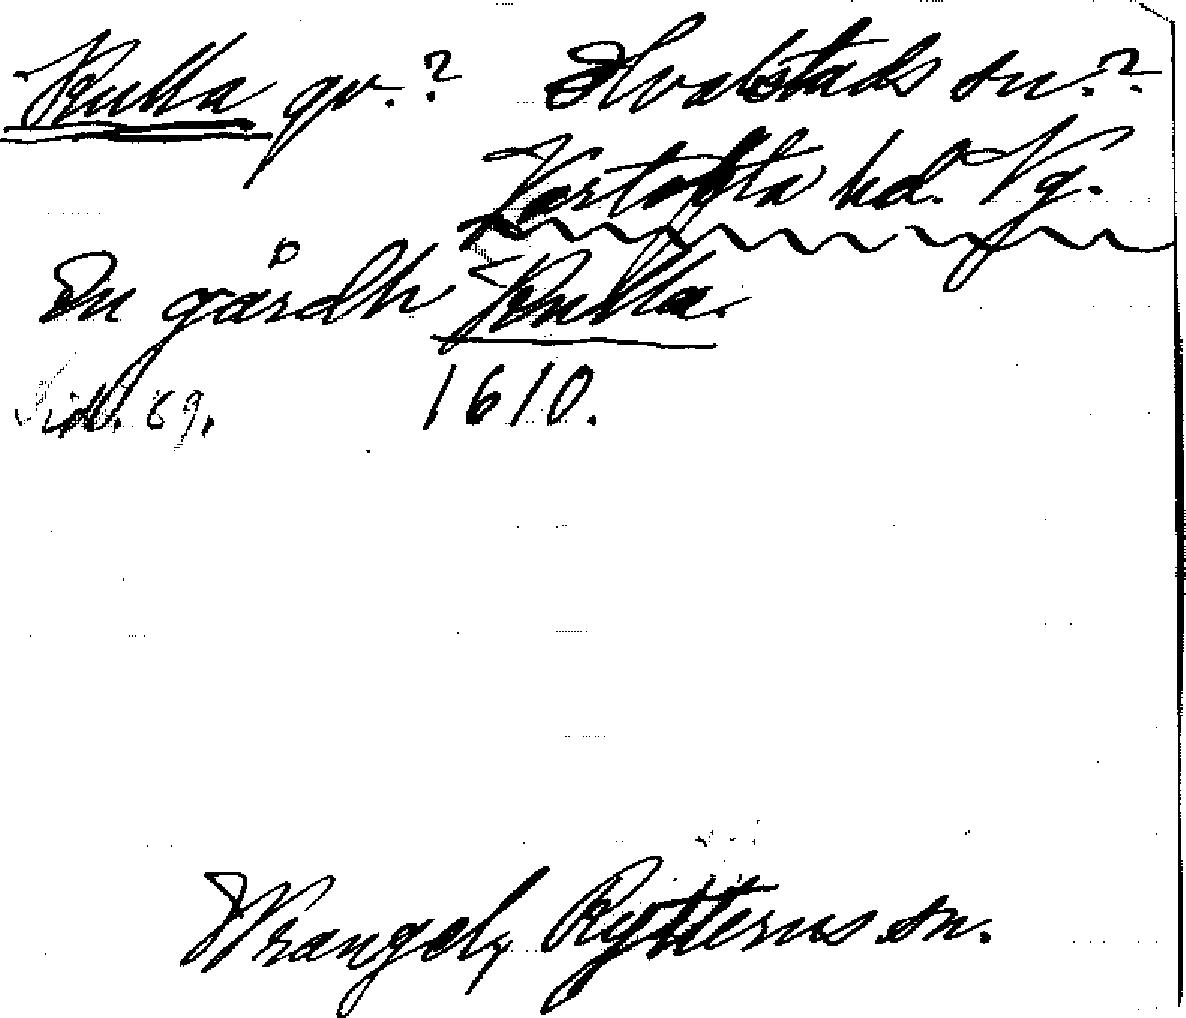 Kulla qv.? Hvalstads sn.?
Vartofta hd. Vg.
En gårdh Kulla.
Sid. 69. 1610.
Wrangel, Rytterns sn.